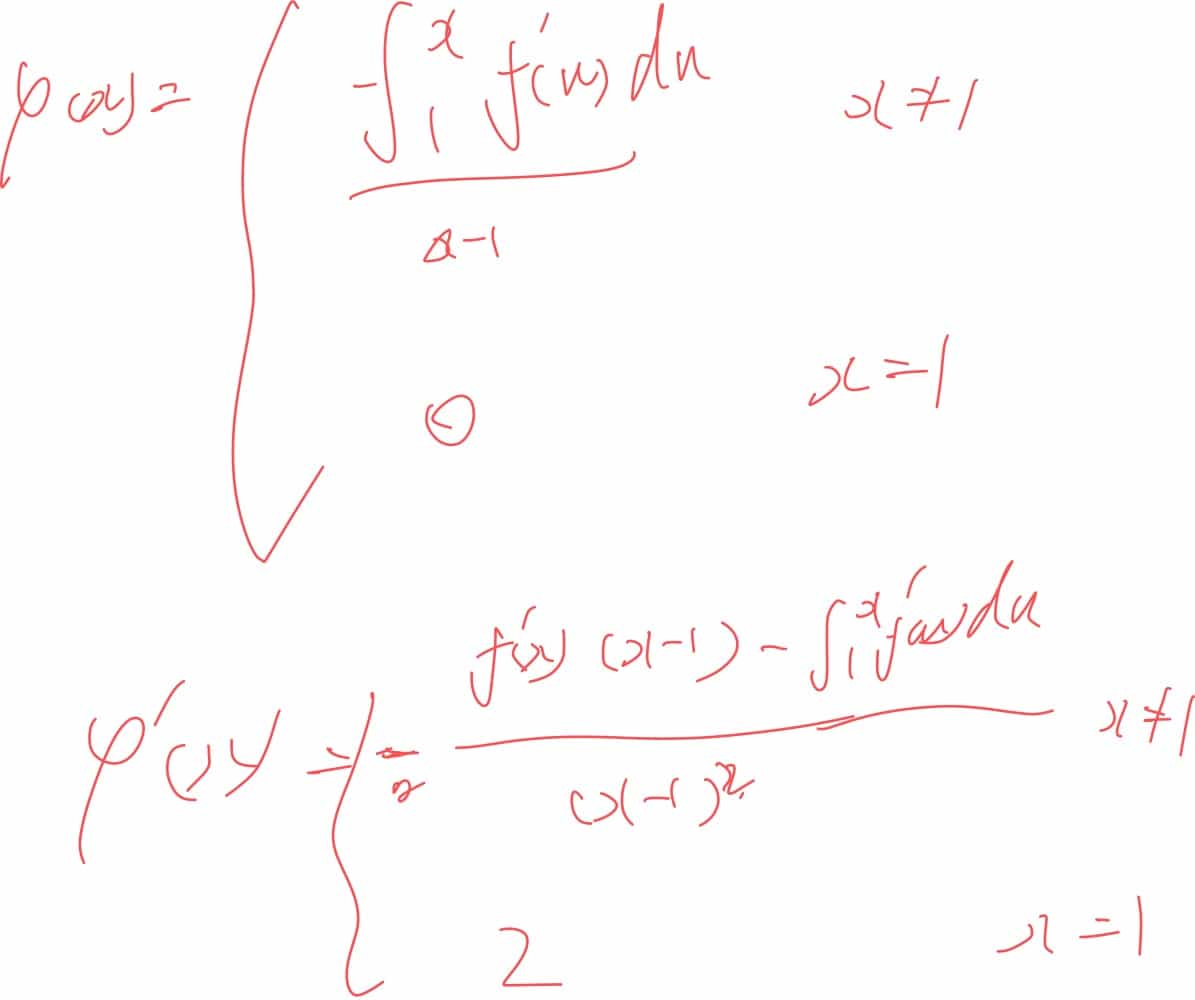 φ(x) = { -∫₁ˣ f'(u) du / x-1   x≠1
0   x=1
φ'(x) = { - f'(x) (x-1) - ∫₁ˣ f'(u) du / (x-1)²   x≠1
2   x=1